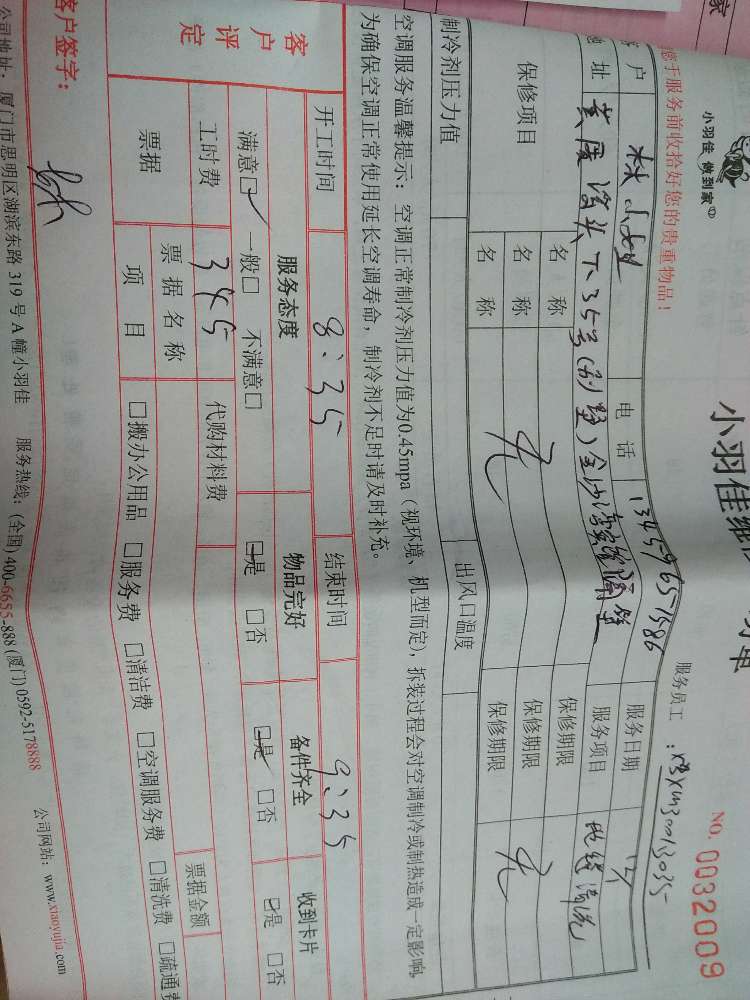 家
小羽佳 做到家
小羽佳维
单
NO. 0032009
服务前收拾好您的贵重物品!
服务员工:
客户 林小姐 电话 13459651586 服务日期
地址 服务项目 地毯清洗
保修项目 名称 无 保修期限 无
名称 保修期限
名称 保修期限
制冷剂压力值 出风口温度
空调服务温馨提示:空调正常制冷剂压力值为0.45mpa(视环境、机型而定),拆装过程会对空调制冷或制热造成一定影响,
为确保空调正常使用延长空调寿命,制冷剂不足时请及时补充。
开工时间 8:35 结束时间 9:35
客户评定 服务态度 物品完好 备件齐全 收到卡片
满意☑ 一般□ 不满意□ ☑是 □否 ☑是 □否 ☑是 □否
工时费 345 代购材料费
票据 票据名称 票据金额
项目 □搬办公用品 □服务费 □清洁费 □空调服务费 □清洗费 □疏通费
客户签字:
公司地址:厦门市思明区湖滨东路 319 号 A 幢小羽佳 服务热线:(全国) 400-6655-888 (厦门) 0592-5178888 公司网站:www.xiaoyujia.com